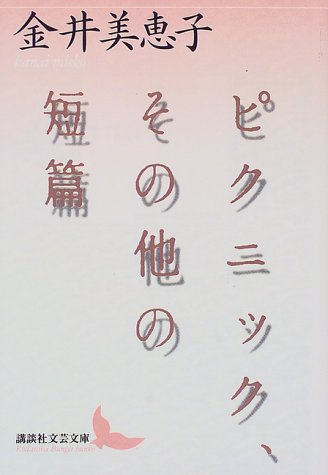 金井美恵子
kanai mieko
ピクニック、
その他の
短篇
講談社文芸文庫
Kodansha Bungei bunko